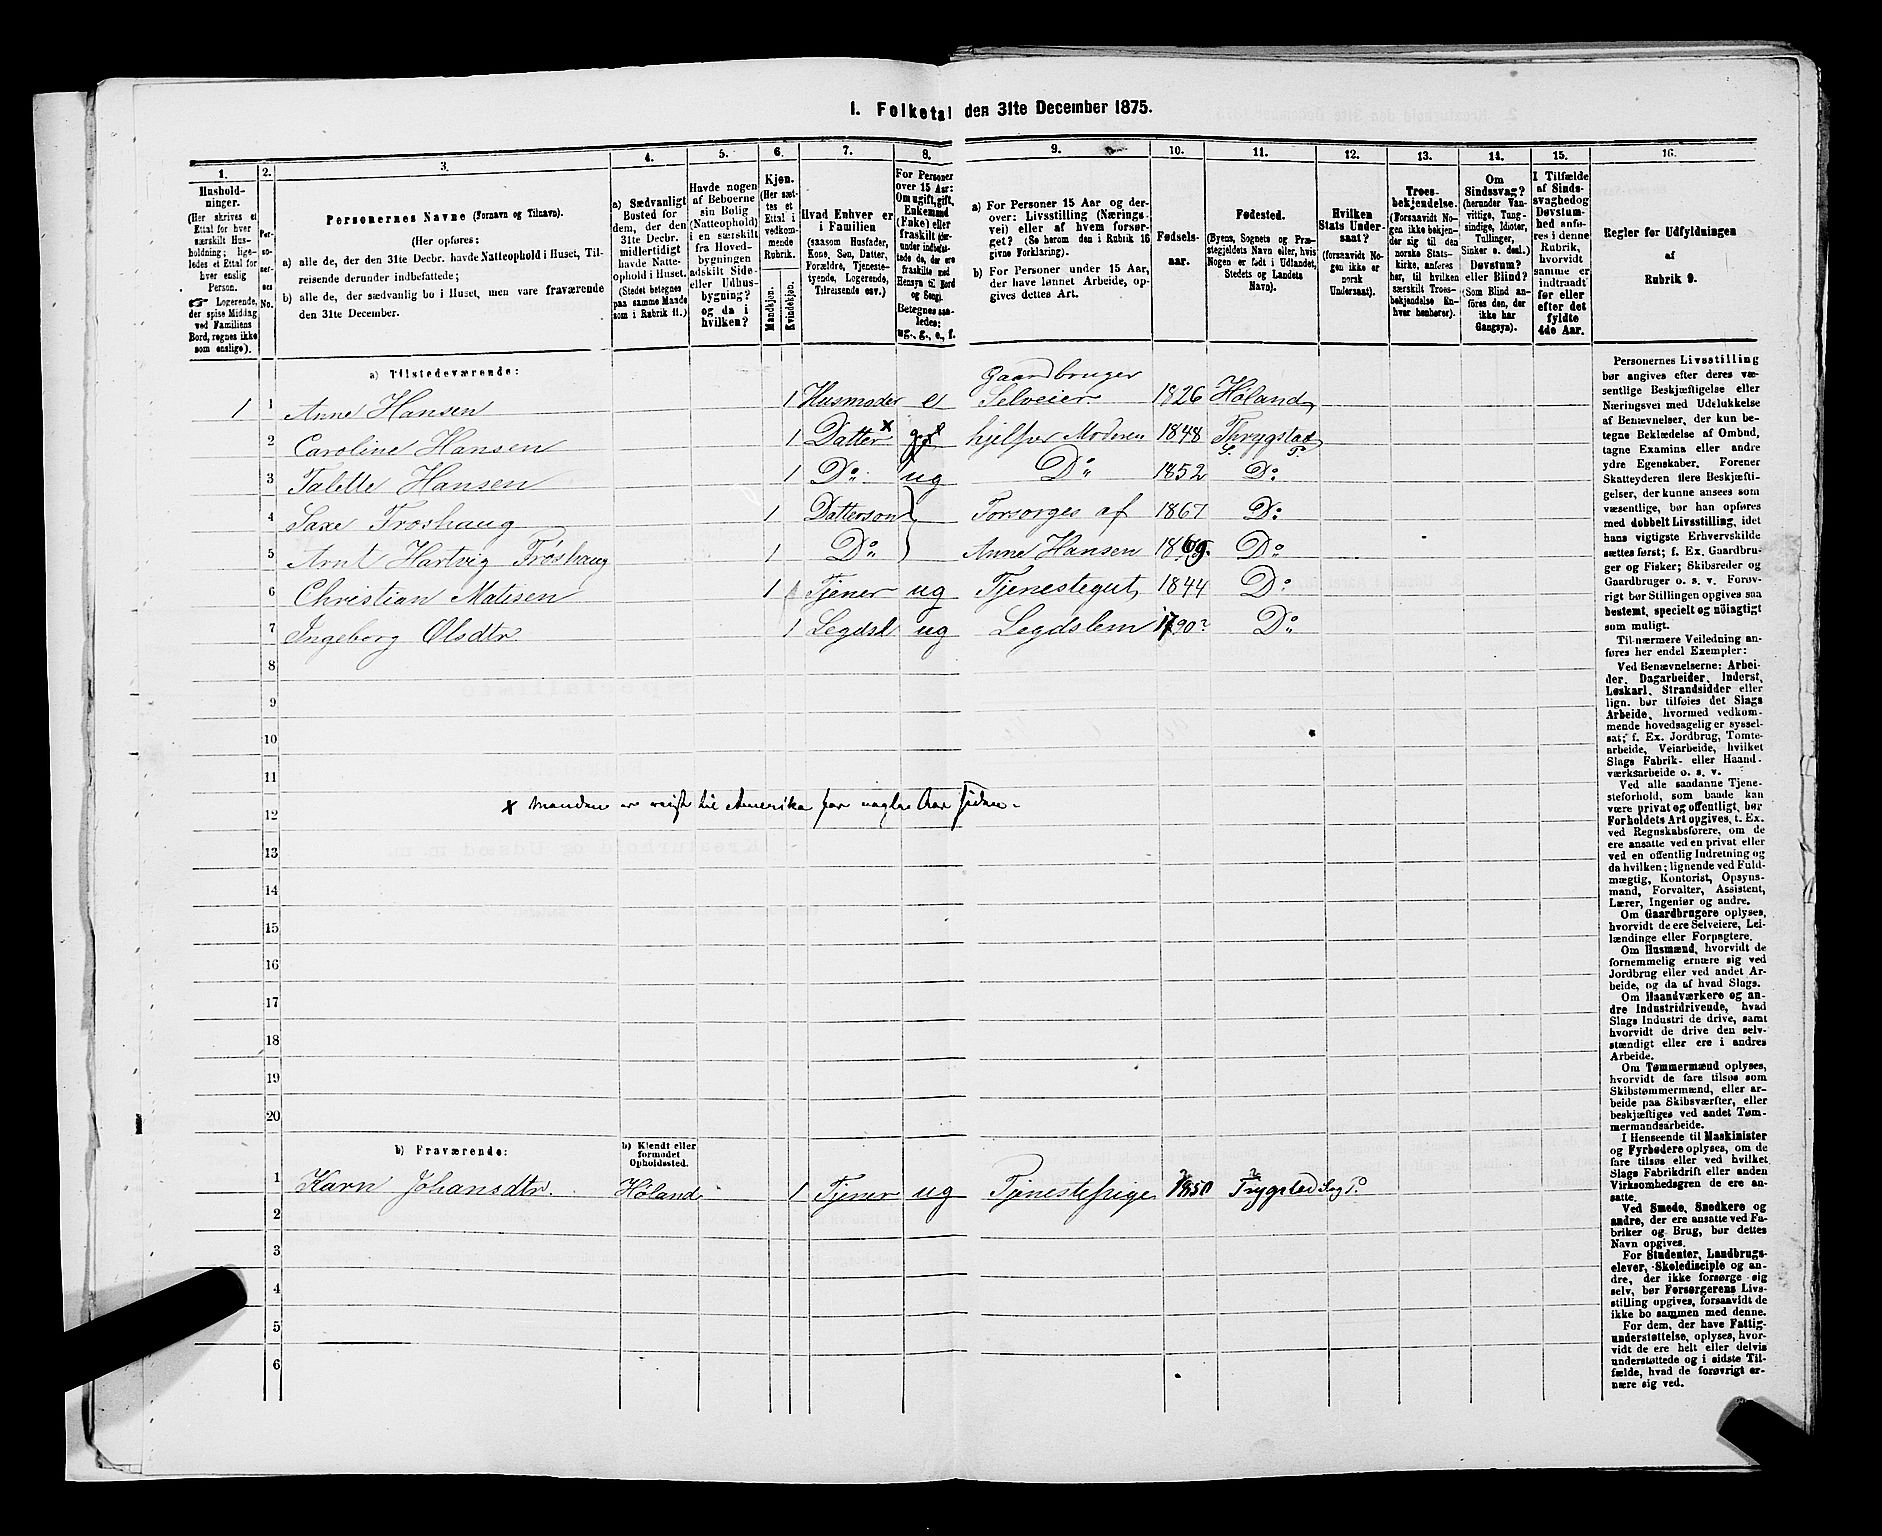 1. Folketal den 31te December 1875.
1. 2. 3. 4. 5. 6. 7. 8. 9. 10. 11. 12. 13. 14. 15. 16.
Husholdninger.
(Her skrives et
Ettal for hver
særskilt Husholdning; ligeledes
et Ettal for
hver enslig
Person.
☞ Logerende,
der spise Middag
ved Familiens
Bord, regnes ikke
som enslige).
Personernes No.
Personernes Navne (Fornavn og Tilnavn).
(Her opføres:
a) alle de, der den 31te Decbr. havde Natteophold i Huset, Tilreisende
derunder indbefattede;
b) alle de, der sædvanlig bo i Huset, men vare fraværende
den 31te December.
a) Sædvanligt
Bosted for
dem, der den
31te Decbr.
midlertidigt
havde Natteophold
i Huset.
(Stedet betegnes
paa samme Maade
som i Rubrik 11.)
Havde nogen
af Beboerne
sin Bolig
(Natteophold)
i en særskilt
fra Hovedbygningen
adskilt Side-
eller Udhusbygning?
og da i
hvilken?
Kjøn.
(Her sættes
et
Ettal i
vedkommende
Rubrik.
Mandkjøn.
Kvindekjøn.
Hvad Enhver er
i Familien
(saasom Husfader,
Kone, Søn, Datter,
Forældre, Tjenestetyende,
Logerende,
Tilreisende osv.)
For Personer
over 15 Aar:
Om ugift, gift,
Enkemand
(Enke) eller
fraskilt (derunder
indbefattede
de, der ere
fraskilte med
Hensyn til Bord
og Seng).
Betegnes saaledes:
ug., g., e., f.
a) For Personer 15 Aar og derover:
Livsstilling (Næringsvei)
eller af hvem forsørget?
(Se herom den i Rubrik 16
givne Forklaring).
b) For Personer under 15 Aar,
der have lønnet Arbeide, opgives
dettes Art.
Fødselsaar.
Fødested.
(Byens, Sognets og Præstegjeldets
Navn eller, hvis
Nogen er født i Udlandet,
Stedets og Landets
Navn).
Hvilken
Stats Undersaat?
(forsaavidt Nogen
ikke er
norsk
Undersaat).
Troesbekjendelse.
(Forsaavidt Nogen
ikke bekjender
sig til den
norske Statskirke,
anføres
her, til hvilken
særskilt Troesbekjendelse
Enhver
henhører).
Om
Sindssvag?
(herunder Vanvittige,
Tungsindige,
Idioter,
Tullinger,
Sinker o. desl.)
Døvstum?
eller Blind?
(Som Blind anføres
den, der
ikke har
Gangsyn).
I Tilfælde
af Sindssvaghed
og
Døvstumhed
anføres
i denne
Rubrik,
hvorvidt
samme er
indtraadt
før eller
efter det
fyldte
4de Aar.
Regler for Udfyldningen
af
Rubrik 9.
a) Tilstedeværende:
Gaardbruger
1 1 Anne Hansen 1 Husmoder e Selveier 1826 Høland
2 Caroline Hansen 1 Datter x g hjelper Moderen 1848 Thrygstad
S. P.
3 Talette Hansen 1 Do. ug Do 1852 Do
4 Saxe Froshaug 1 Datterson Forsørges af 1867 Do
5 Arnt Hartvig Frøshaug 1 Do Anne Hansen 1869. Do
6 Christian Matisen 1 Tjener ug Tjenestegut 1844 Do
7 Ingeborg Olsdtr 1 Legdsl ug Legdslem 1790? Do
8
9
10
11
x Manden er reist til Amerika for nogle Aar siden.
12
13
14
15
16
17
18
19
20
b) Fraværende:
b) Kjendt eller
formodet
Opholdssted.
1 Karn Johansdtr. Høland 1 Tjener ug Tjenestepige 1850 Trygstad Sog P.
2
3
4
5
6
Personernes Livsstilling
bør angives efter deres væsentlige
Beskjæftigelse eller
Næringsvei med Udelukkelse
af Benævnelser, der kun betegne
Beklædelse af Ombud,
tagne Examina eller andre
ydre Egenskaber. Forener
Skatteyderen flere Beskjæftigelser,
der kunne ansees som
væsentlige, bør han opføres
med dobbelt Livsstilling, idet
hans vigtigste Erhvervskilde
sættes først; f. Ex. Gaardbruger
og Fisker; Skibsreder og
Gaardbruger o. s. v. Forøvrigt
bør Stillingen opgives saa
bestemt, specielt og nöiagtigt
som muligt.
Til nærmere Veiledning anføres
her endel Exempler:
Ved Benævnelserne: Arbeider,
Dagarbeider, Inderst,
Løskarl, Strandsidder eller
lign. bør tilføies det Slags
Arbeide, hvormed vedkommende
hovedsagelig er sysselsat;
f. Ex. Jordbrug, Tomtearbeide,
Veiarbeide, hvilket
Slags Fabrik- eller Haandværksarbeide
o. s. v.
Ved alle saadanne Tjenesteforhold,
som baade kan
være privat og offentligt, bør
Forholdets Art opgives, t. Ex.
ved Regnskabsførere, om de
ere ansatte ved en privat eller
ved en offentlig Indretning og
da hvilken; lignende ved Fuldmægtig,
Kontorist, Opsynsmand,
Forvalter, Assistent,
Lærer, Ingeniør og andre.
Om Gaardbrugere oplyses,
hvorvidt de ere Selveiere, Leilændinge
eller Forpagtere.
Om Husmænd, hvorvidt de
fornemmelig ernære sig ved
Jordbrug eller ved andet Arbeide,
og da af hvad Slags.
Om Haandværkere og andre
Industridrivende, hvad
Slags Industri de drive, samt
hvorvidt de drive den selvstændigt
eller ere i andres
Arbeide.
Om Tømmermænd oplyses,
hvorvidt de fare tilsøs som
Skibstømmermænd, eller arbeide
paa Skibsværfter, eller
beskjæftiges ved andet Tømmermandsarbeide.
I Henseende til Maskinister
og Fyrbødere oplyses, om de
fare tilsøs eller ved hvilket
Slags Fabrikdrift eller anden
Virksomhedsgren de ere ansatte.
Ved Smede, Snedkere og
andre, der ere ansatte ved Fabriker
og Brug, bør dettes
Navn opgives.
For Studenter, Landbrugselever,
Skoledisciple og andre,
der ikke forsørge sig
selv, bør Forsørgerens Livsstilling
opgives, forsaavidt de
ikke bo sammen med denne.
For dem, der have Fattigunderstøttelse,
oplyses, hvorvidt
de ere helt eller delvis
understøttede og i sidste Tilfælde,
hvad de forøvrigt ernære
sig ved.